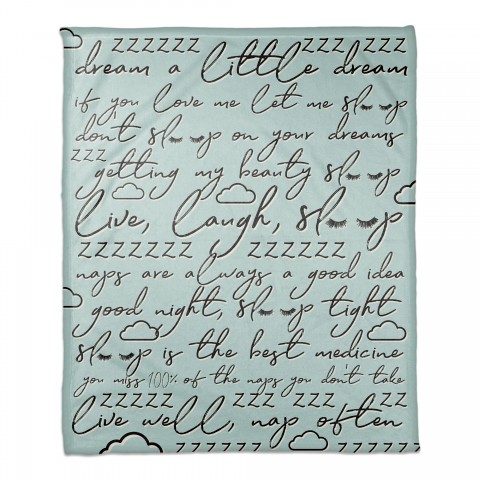 zzzzzz zzz zzz
dream a little dream
if you love me let me slp
don't slp on your dreams
zzz
getting my beauty slp
live, laugh, slp
zzzzzzz zzzzzz
naps are always a good idea
good night, slp tight
slp is the best medicine
you miss 100% of the naps you don't take
zzz zzz zz
live well, nap often
zzzzzz zzzzzz